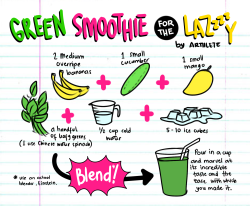 GREEN SMOOTHIE FOR THE LAZZZY
by ARTMLITE
2 medium overripe bananas
1 small cucumber
1 small mango
a handful of leafy greens
(I use Chinese water spinach)
1/2 cup cold water
5-10 ice cubes
Blend!*
* use an actual blender, Einstein.
Pour in a cup
and marvel at
its incredible
taste and the
ease with which
you made it.